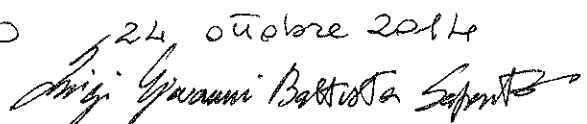 24 ottobre 2014
Luigi Giovanni Battista